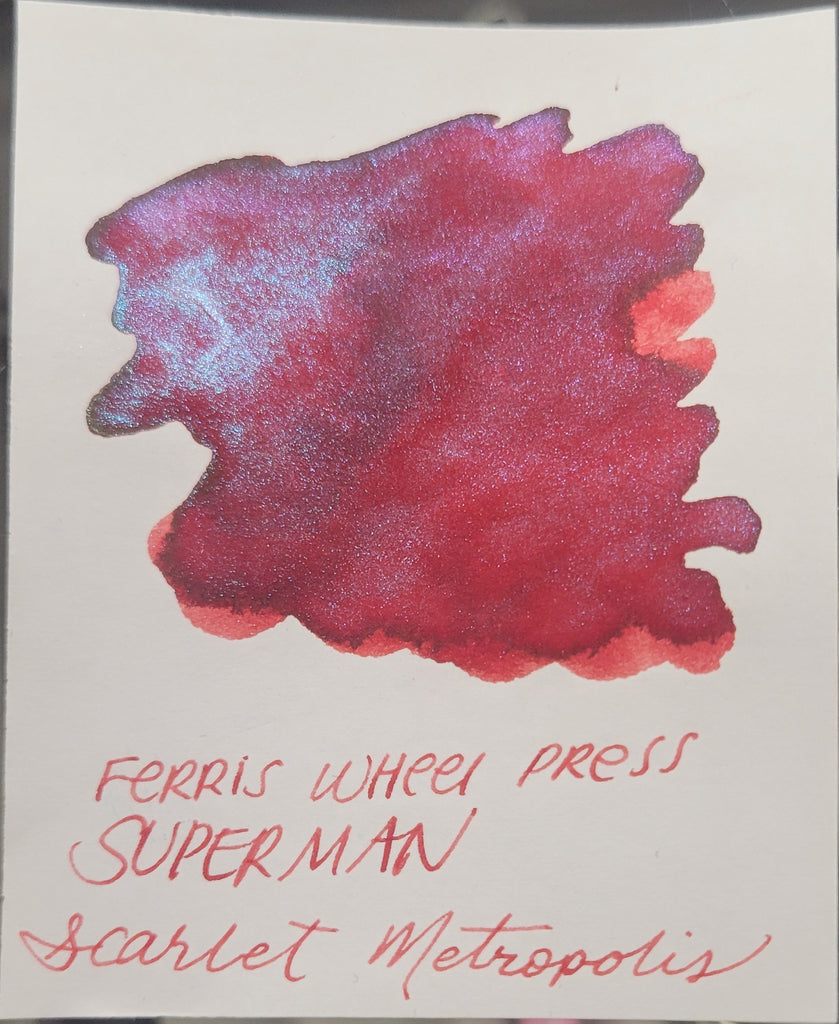 FERRIS WHEEL PRESS
SUPERMAN
Scarlet Metropolis